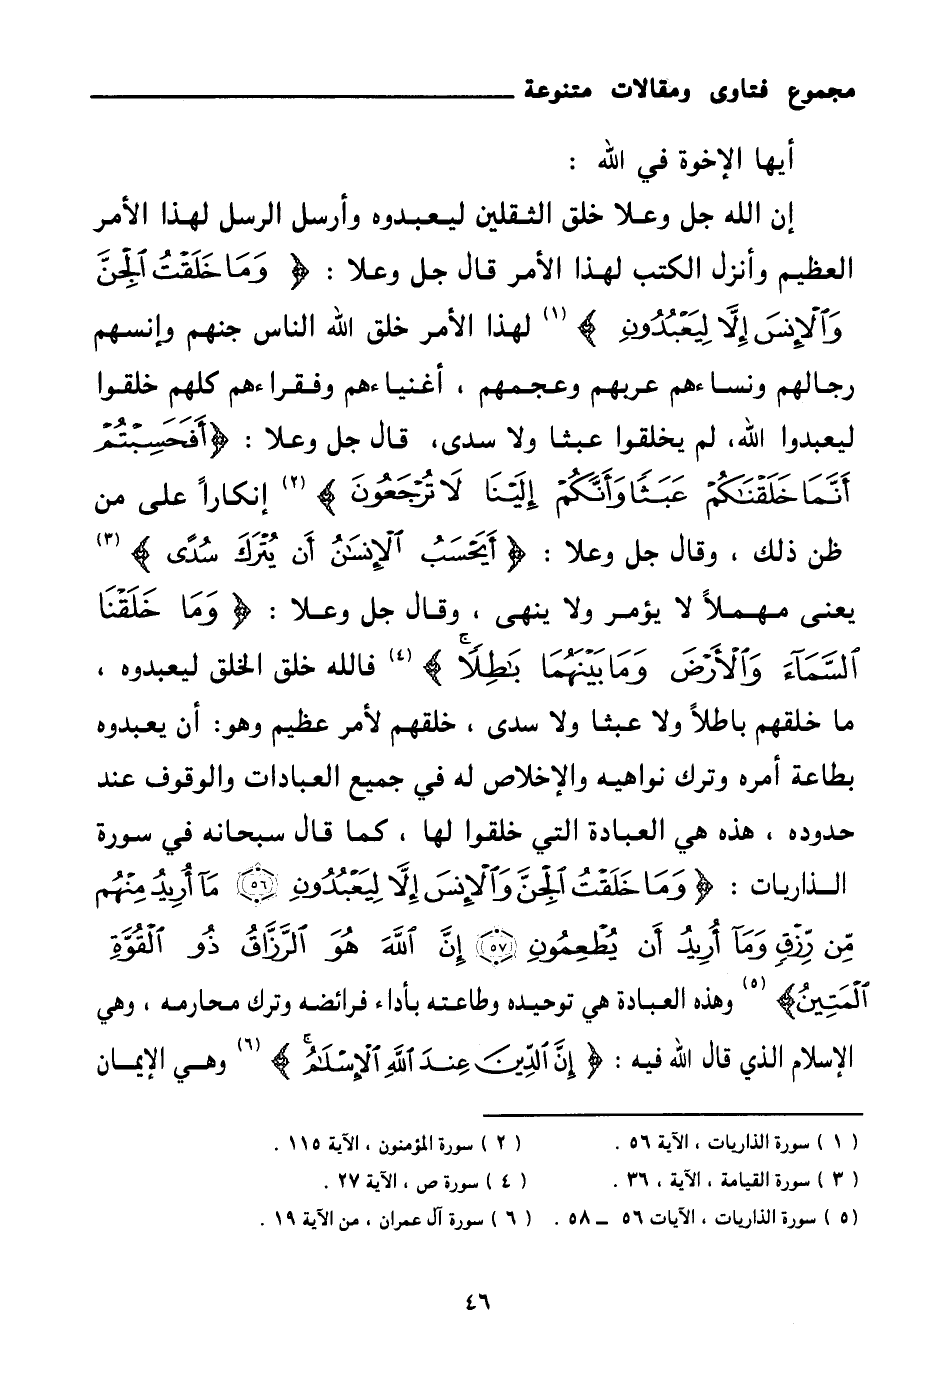 مجموع فتاوى ومقالات متنوعة
أيها الإخوة في الله :
إن الله جل وعلا خلق الثقلين ليعبدوه وأرسل الرسل لهذا الأمر
العظيم وأنزل الكتب لهذا الأمر قال جل وعلا : ﴿ وَمَا خَلَقْتُ ٱلْجِنَّ
وَٱلْإِنسَ إِلَّا لِيَعْبُدُونِ ﴾ (١) لهذا الأمر خلق الله الناس جنهم وإنسهم
رجالهم ونساءهم عربهم وعجمهم ، أغنياءهم وفقراءهم كلهم خلقوا
ليعبدوا الله، لم يخلقوا عبثا ولا سدى، قال جل وعلا : ﴿أَفَحَسِبْتُمْ
أَنَّمَا خَلَقْنَٰكُمْ عَبَثًا وَأَنَّكُمْ إِلَيْنَا لَا تُرْجَعُونَ ﴾ (٢) إنكاراً على من
ظن ذلك ، وقال جل وعلا : ﴿ أَيَحْسَبُ ٱلْإِنسَٰنُ أَن يُتْرَكَ سُدًى ﴾ (٣)
يعنى مهملاً لا يؤمر ولا ينهى ، وقال جل وعلا : ﴿ وَمَا خَلَقْنَا
ٱلسَّمَآءَ وَٱلْأَرْضَ وَمَا بَيْنَهُمَا بَٰطِلًا ۚ ﴾ (٤) فالله خلق الخلق ليعبدوه ،
ما خلقهم باطلاً ولا عبثا ولا سدى ، خلقهم لأمر عظيم وهو: أن يعبدوه
بطاعة أمره وترك نواهيه والإخلاص له في جميع العبادات والوقوف عند
حدوده ، هذه هي العبادة التي خلقوا لها ، كما قال سبحانه في سورة
الذاريات : ﴿ وَمَا خَلَقْتُ ٱلْجِنَّ وَٱلْإِنسَ إِلَّا لِيَعْبُدُونِ ۝٥٦ مَآ أُرِيدُ مِنْهُم
مِّن رِّزْقٍ وَمَآ أُرِيدُ أَن يُطْعِمُونِ ۝٥٧ إِنَّ ٱللَّهَ هُوَ ٱلرَّزَّاقُ ذُو ٱلْقُوَّةِ
ٱلْمَتِينُ﴾ (٥) وهذه العبادة هي توحيده وطاعته بأداء فرائضه وترك محارمه ، وهي
الإسلام الذي قال الله فيه : ﴿ إِنَّ ٱلدِّينَ عِندَ ٱللَّهِ ٱلْإِسْلَٰمُ ۚ ﴾ (٦) وهي الإيمان
( ١ ) سورة الذاريات ، الآية ٥٦ . ( ٢ ) سورة المؤمنون ، الآية ١١٥ .
( ٣ ) سورة القيامة ، الآية ، ٣٦ . ( ٤ ) سورة ص ، الآية ٢٧ .
( ٥ ) سورة الذاريات ، الآيات ٥٦ – ٥٨ . ( ٦ ) سورة آل عمران ، من الآية ١٩ .
٤٦